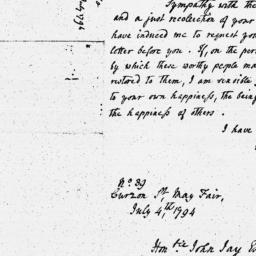 Sympathy with the
and a just recollection of your
have induced me to request you
letter before you. If, on the per
by which these worthy people ma
restored to them, I am sensible
to your own happiness, the being
the happiness of others.
I have
No. 39
Curzon St. May Fair,
July 4th, 1794
Honble John Jay Es
July 1794